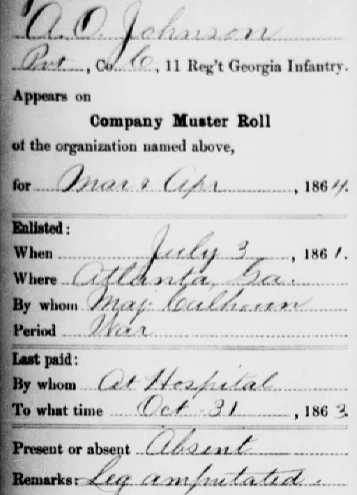 A. O. Johnson
Pvt, Co. C, 11 Reg't Georgia Infantry.
Appears on
Company Muster Roll
of the organization named above,
for Mar & Apr, 1864.
Enlisted:
When July 3, 1861.
Where Atlanta, Ga.
By whom Maj Calhoun
Period War
Last paid:
By whom At Hospital
To what time Oct 31, 1863
Present or absent Absent
Remarks: Leg amputated.